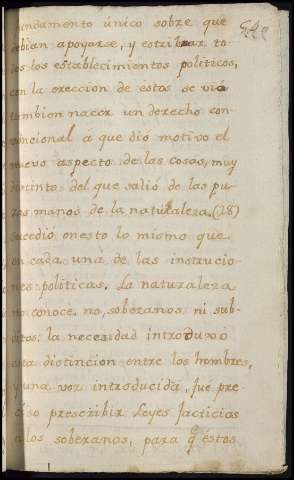 fundamento único sobre que
debian apoyarse, y estribar to-
dos los establecimientos politicos,
con la ereccion de estos se vió
tambien nacer un derecho con-
vencional á que dió motivo el
nuevo aspecto de las cosas, muy
distinto del que salió de las pu-
ras manos de la naturaleza. (28)
Sucedió en esto lo mismo que
en cada una de las institucio-
nes politicas. La naturaleza
no conoce, no, soberanos, ni sub-
ditos: la necesidad introduxo
esta distincion entre los hombres,
y una vez introducida, fué pre-
ciso prescribir Leyes facticias
a los soberanos, para q.e estos